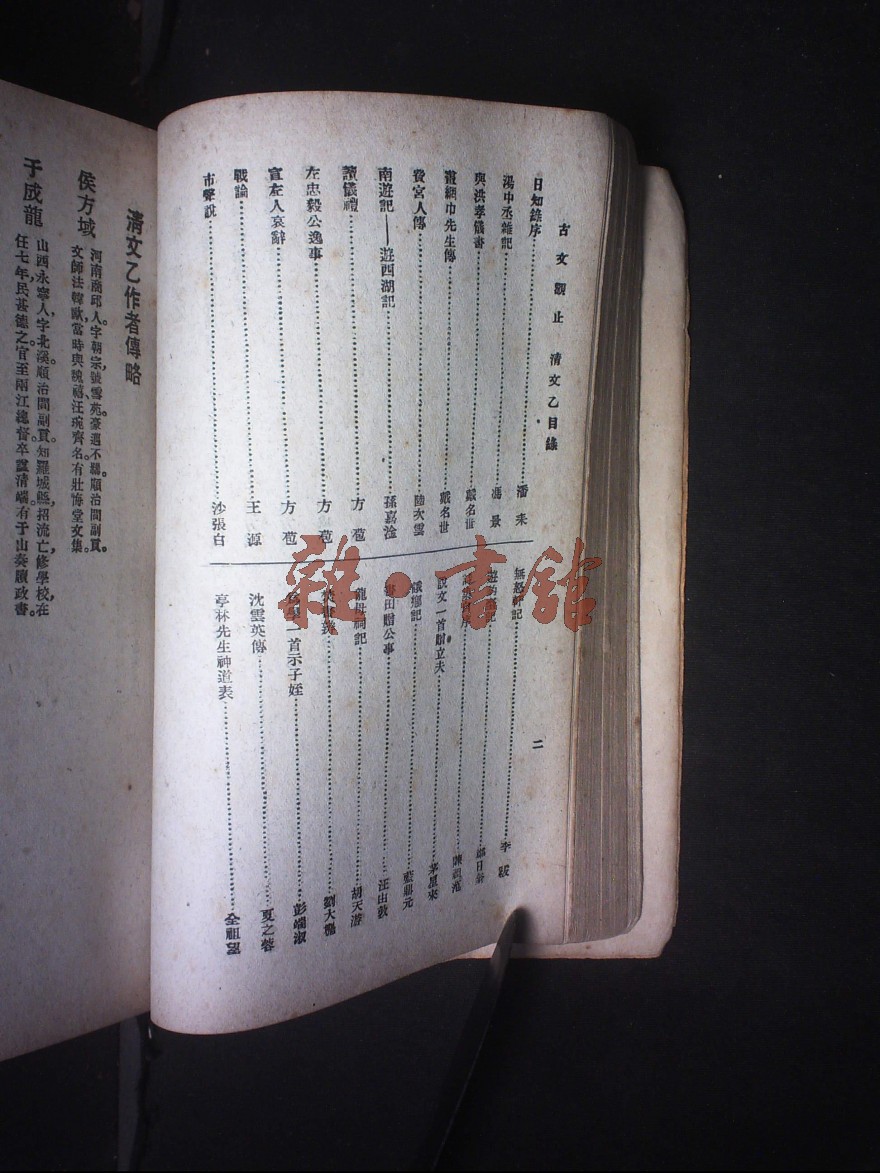 古文觀止 清文乙目錄
二
日知錄序 潘耒
湯中丞雜記 馮景
與洪孝儀書 戴名世
畫網巾先生傳 戴名世
費宮人傳 陸次雲
南遊記——遊西湖記 孫嘉淦
讀儀禮 方苞
左忠毅公逸事 方苞
宣左人哀辭 方苞
戰論 王源
市聲說 沙張白
無怒軒記 李紱
說文一首贈立夫 茅星來
記 藍鼎元
田贈公事 汪由敦
龍母 記 胡天游
劉大櫆
為學一首示子姪 彭端淑
沈雲英傳 夏之蓉
亭林先生神道表 全祖望
清文乙作者傳略
侯方域 河南商邱人。字朝宗，號雪苑。豪邁不羈。順治間副貢。
文師法韓歐，當時與魏禧、汪琬齊名。有壯悔堂文集。
于成龍 山西永寧人，字北溪。順治間副貢。知羅城縣，招流亡，修學校，在
任七年，民甚德之。官至兩江總督。卒諡清端。有于山奏牘政書。
雜·書館